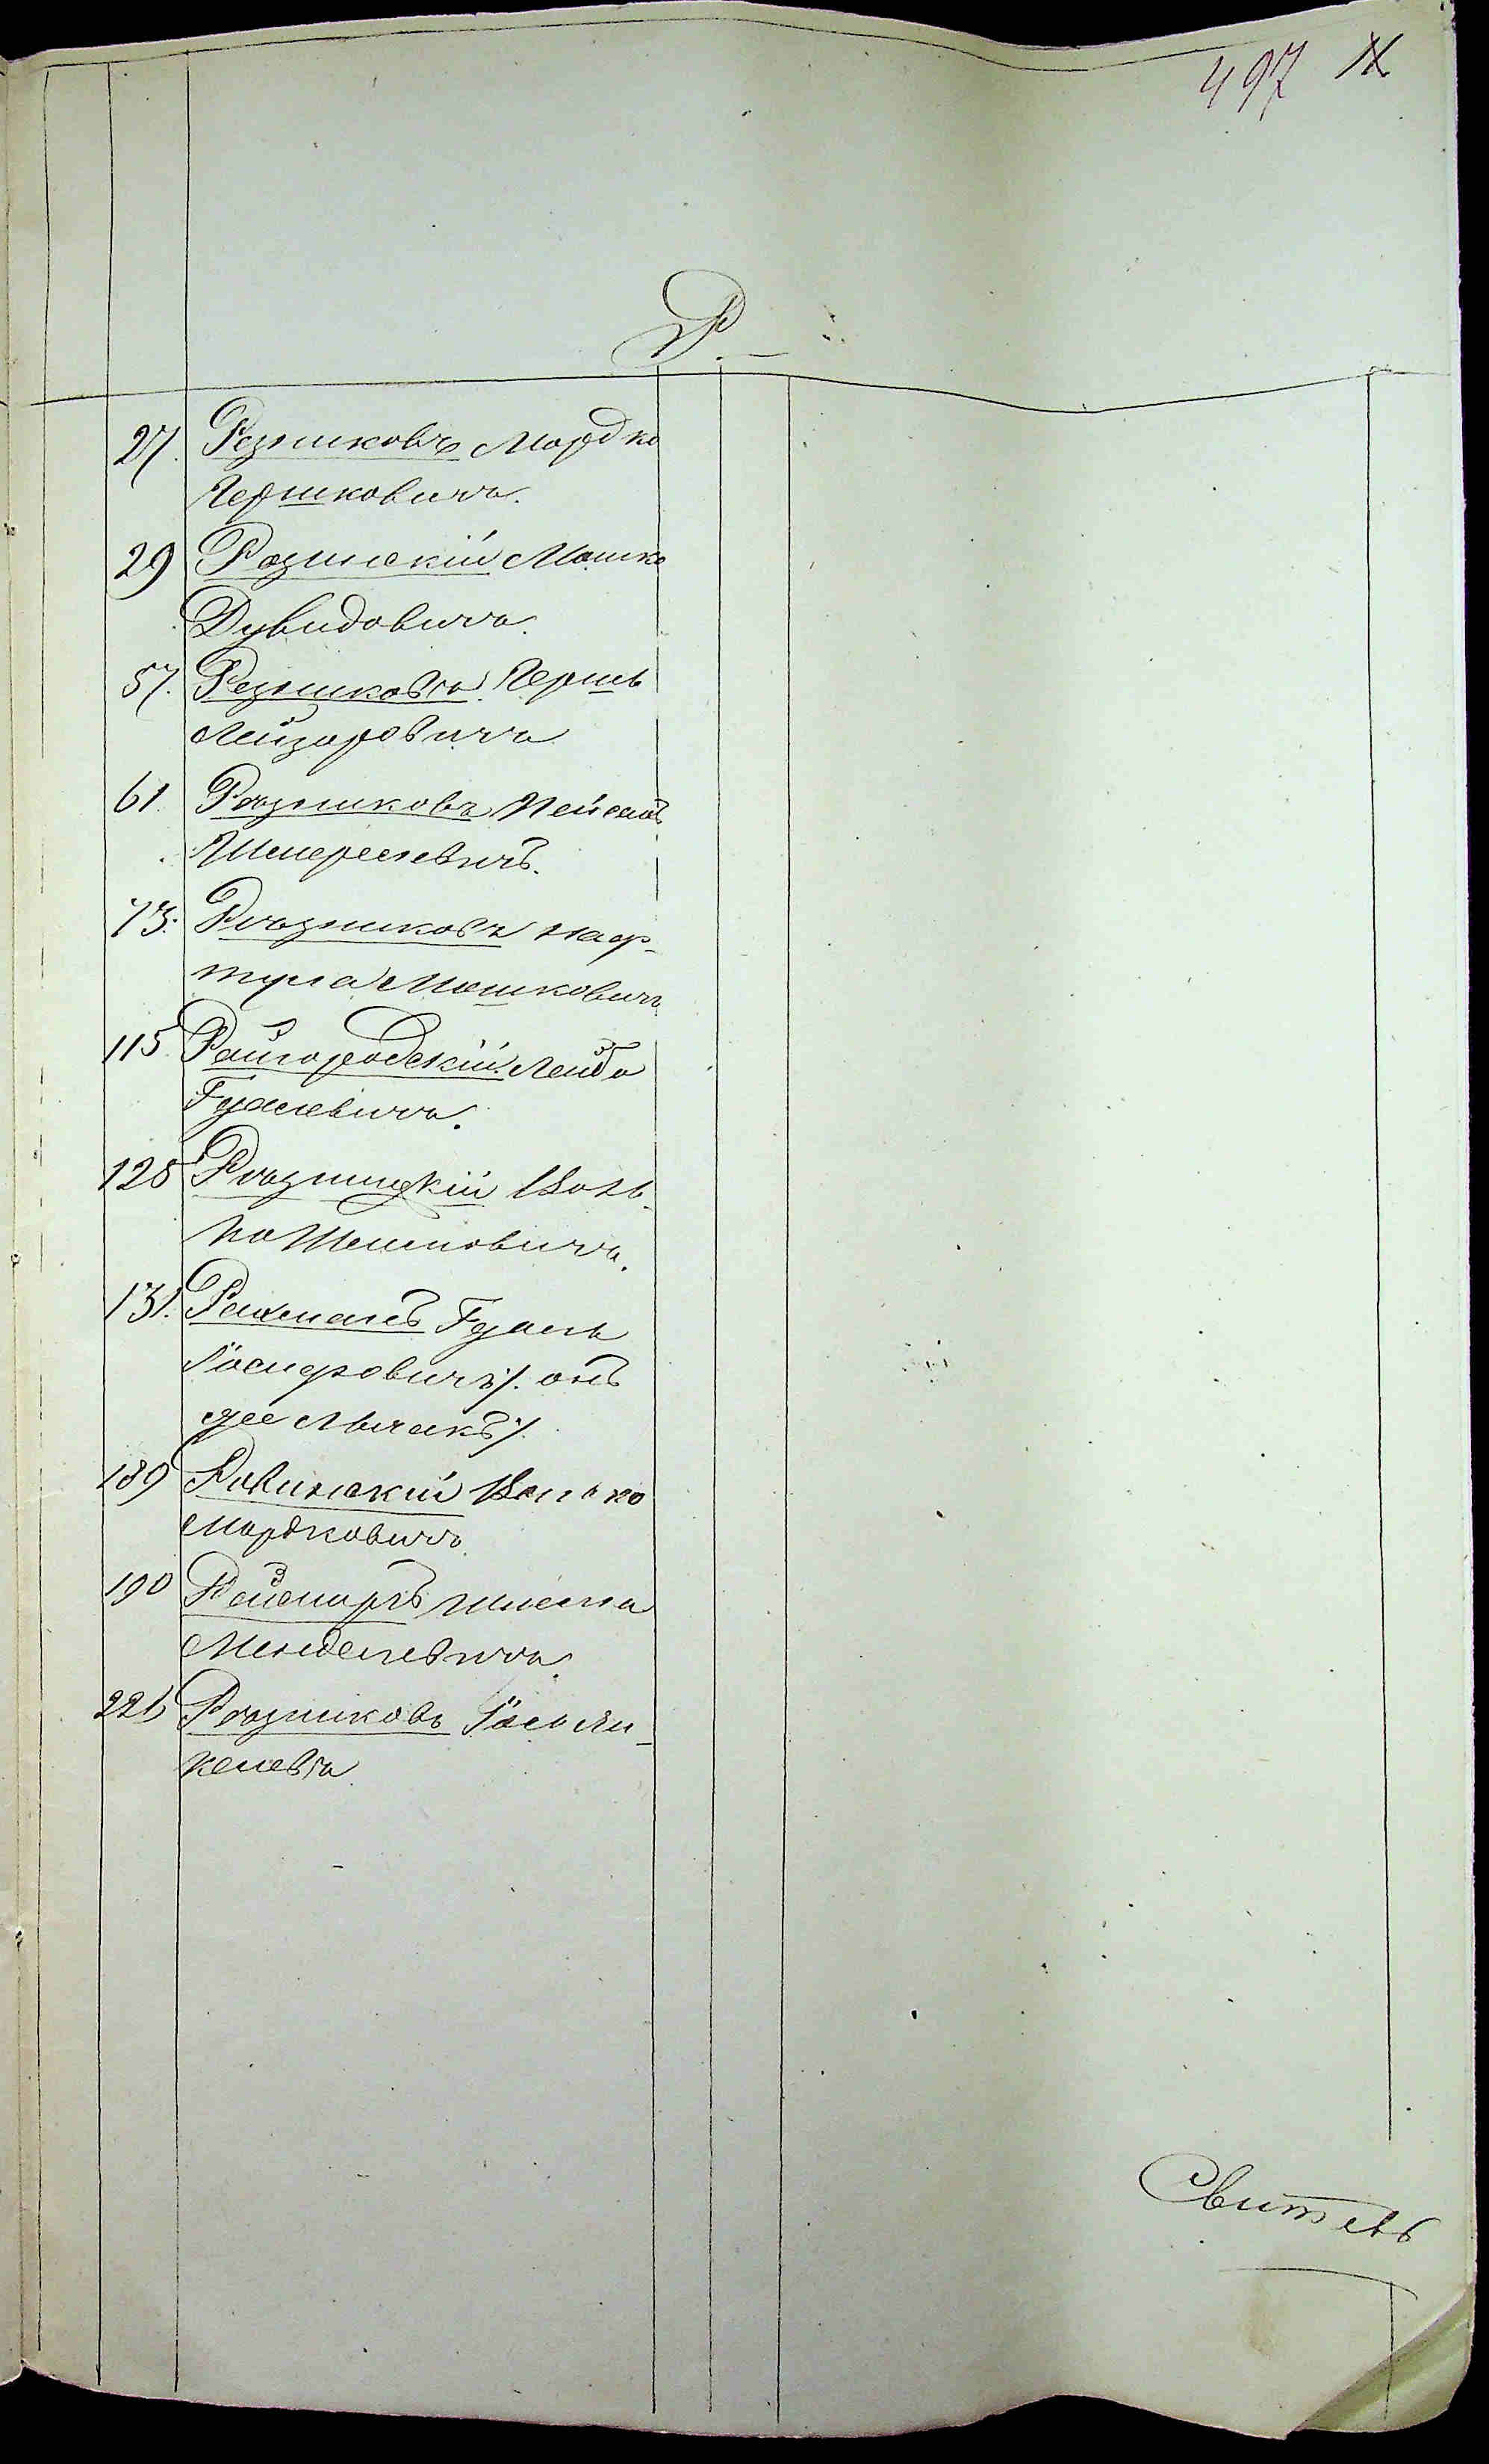 497
Р.
27. Резниковъ Мордко
Гершковичъ.
29 Розинскій Мошко
Дувидовичъ.
57. Резниковъ Гершь
Лейзоровичъ
61. Рѣзниковъ Пейсахъ
Шмерелевичъ.
73. Рѣзниковъ Наф-
тула Мошковичъ
115 Райгородскій Лейба
Гдалевичъ.
128 Рѣзницкій Воль-
ко Шеиновичъ.
131. Рахманъ Гдаль
Іосифовичъ /. онъ
же Лычакъ /.
189 Ровинскій Волько
Мордковичъ
190 Рейсмаръ Шлема
Менделевичъ.
226 Рѣзниковъ Іось Ян-
келевъ